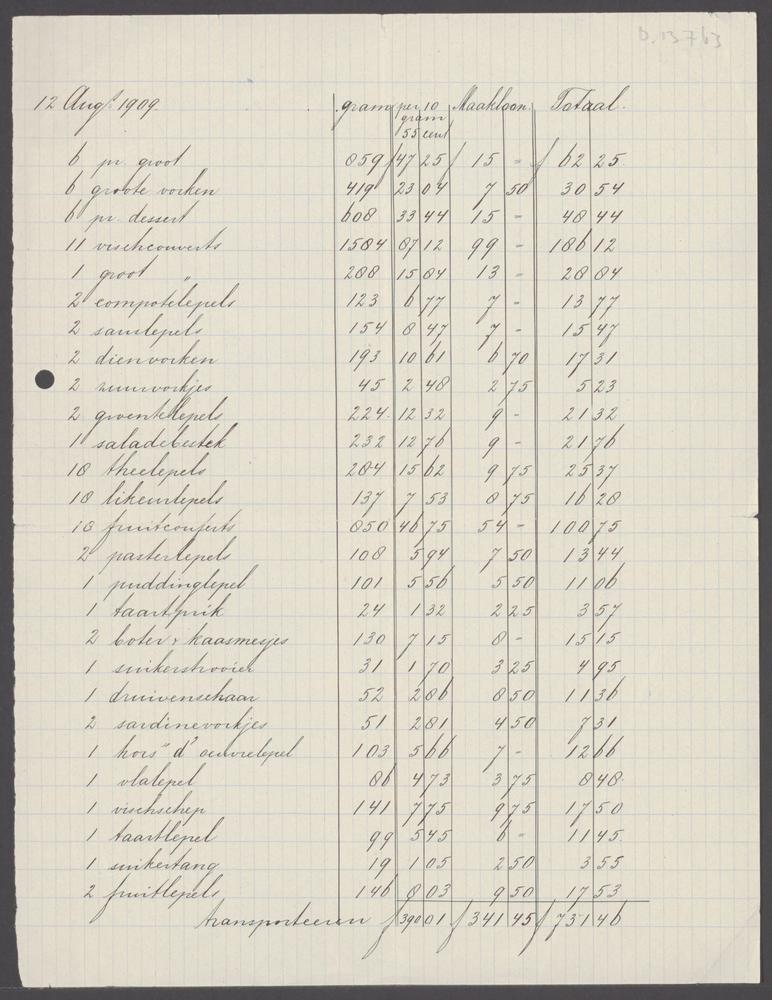 D. 13763
12 Aug. 1909. gram per 10 gram 55 cent Maakloon. Totaal.
6 pr. groot 859 ƒ 47 25 ƒ 15 - ƒ 62 25
6 groote vorken 419 23 04 7 50 30 54
6 pr. dessert 608 33 44 15 - 48 44
11 vischcouverts 1584 87 12 99 - 186 12
1 groot " 288 15 84 13 - 28 84
2 compotelepels 123 6 77 7 - 13 77
2 sauslepels 154 8 47 7 - 15 47
2 dienvorken 193 10 61 6 70 17 31
2 zuurvorkjes 45 2 48 2 75 5 23
2 groentelepels 224 12 32 9 - 21 32
1 saladebestek 232 12 76 9 - 21 76
18 theelepels 284 15 62 9 75 25 37
18 likeurlepels 137 7 53 8 75 16 28
18 fruitcouferts 850 46 75 54 - 100 75
2 pasteilepels 108 5 94 7 50 13 44
1 puddinglepel 101 5 56 5 50 11 06
1 taartprik 24 1 32 2 25 3 57
2 boter & kaasmesjes 130 7 15 8 - 15 15
1 suikerstrooier 31 1 70 3 25 4 95
1 druivenschaar 52 2 86 8 50 11 36
2 sardinevorkjes 51 2 81 4 50 7 31
1 hors "d" oeuvrelepel 103 5 66 7 - 12 66
1 vlalepel 86 4 73 3 75 8 48
1 vischschep 141 7 75 9 75 17 50
1 taartlepel 99 5 45 6 - 11 45
1 suikertang 19 1 05 2 50 3 55
2 fruitlepels 146 8 03 9 50 17 53
transporteeren ƒ 390 01 ƒ 341 45 ƒ 731 46